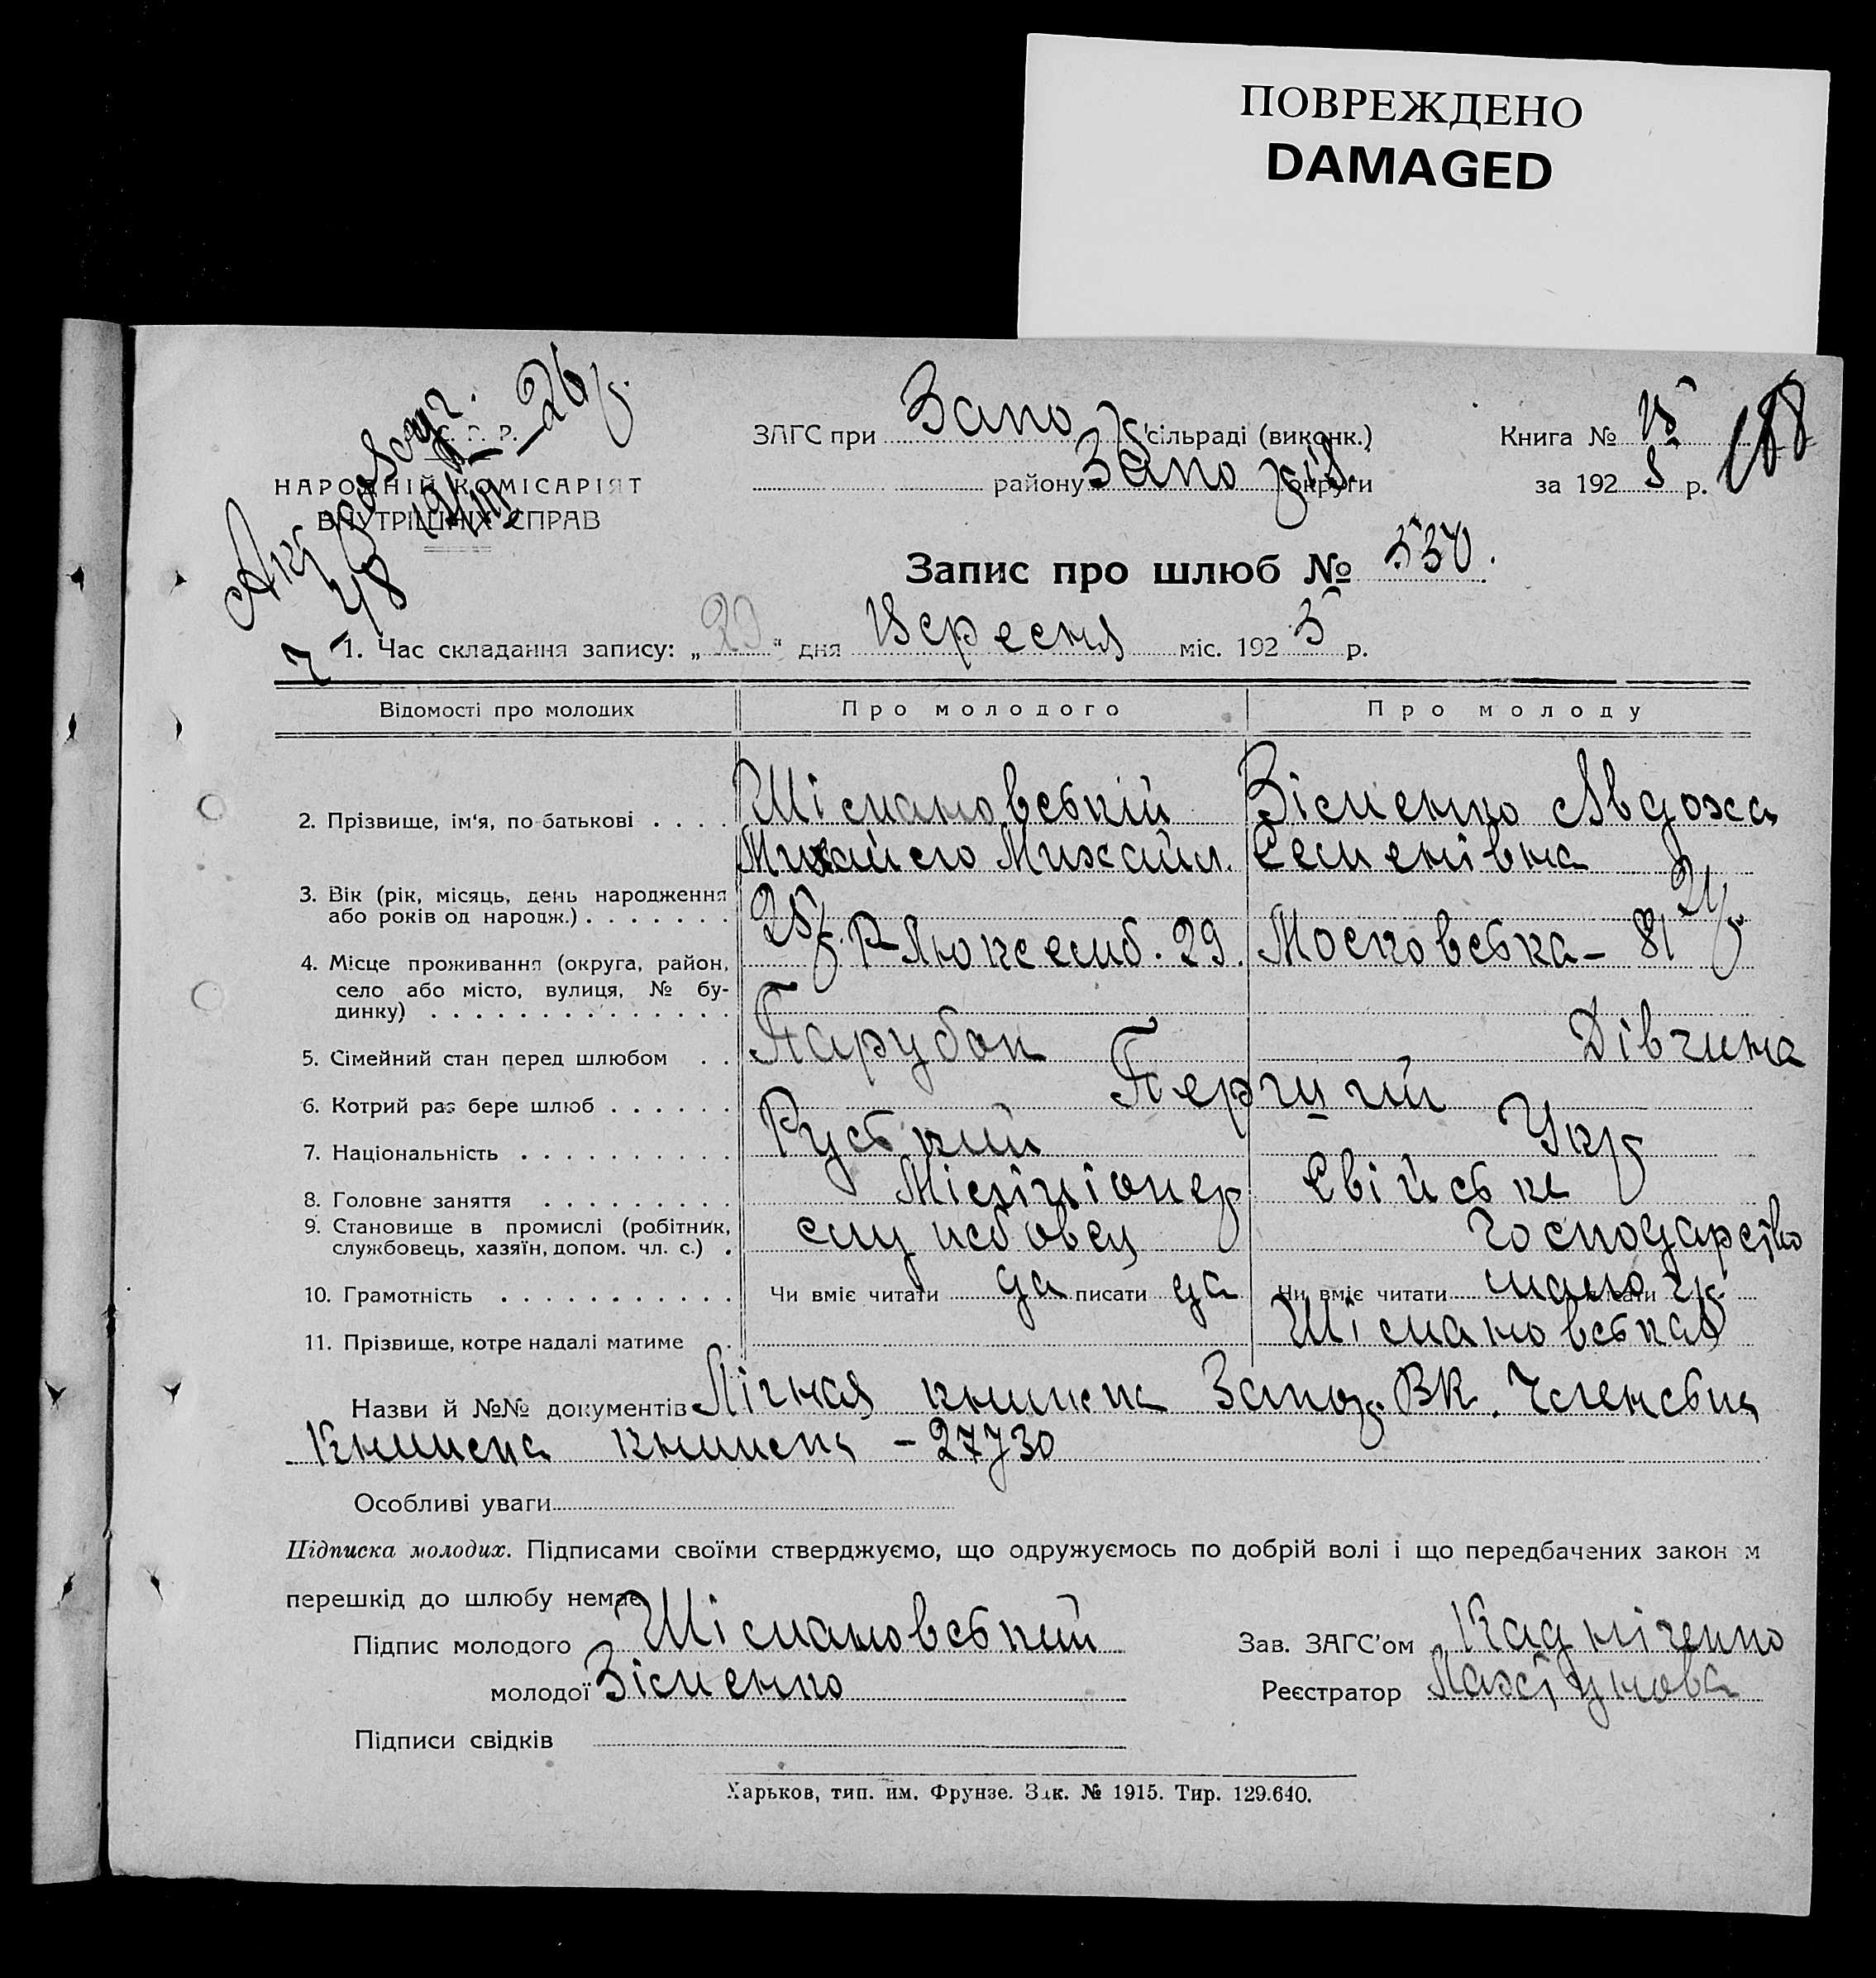 ПОВРЕЖДЕНО
DAMAGED
С. Р. Р.
НАРОДНІЙ КОМІСАРІЯТ
ВНУТРІШНІХ СПРАВ
Акт розвод.
48
26 р.
ЗАГС при Запо сільраді (виконк.)
району Запоріз округи
Книга №
за 192 5 р.
188
Запис про шлюб № 530.
1. Час складання запису: „29“ дня Вересня міс. 1925 р.
Відомості про молодих Про молодого Про молоду
2. Прізвище, ім‘я, по-батькові . . . . Шісмановський Зісменко Явдоха
Михайло Михайл. Семенівна
3. Вік (рік, місяць, день народження
або років од народж.) . . . . . . . 25 р. 21 р.
4. Місце проживання (округа, район, Р-Люксемб. 29. Московська – 81
село або місто, вулиця, № бу-
динку) . . . . . . . . . . . . . .
5. Сімейний стан перед шлюбом . . Парубок Дівчина
6. Котрий раз бере шлюб . . . . . . Перший
7. Національність . . . . . . . . . . Руський Укр
8. Головне заняття . . . . . . . . . Міліціонер Свійське
9. Становище в промислі (робітник,
службовець, хазяїн, допом. чл. с.) . службовец господарство
10. Грамотність . . . . . . . . . . . Чи вміє читати да писати да Чи вміє читати мало писати
11. Прізвище, котре надалі матиме . Шісмановськая
Назви й №№ документів Лічная книжка Запор. ВК. Членська
Книжка книжка – 27730
Особливі уваги
Підписка молодих. Підписами своїми стверджуємо, що одружуємось по добрій волі і що передбачених закон м
перешкід до шлюбу немає
Підпис молодого Шісмановський Зав. ЗАГС’ом
молодої Зісменко Реєстратор
Підписи свідків
Харьков, тип. им. Фрунзе. Зак. № 1915. Тир. 129.640.